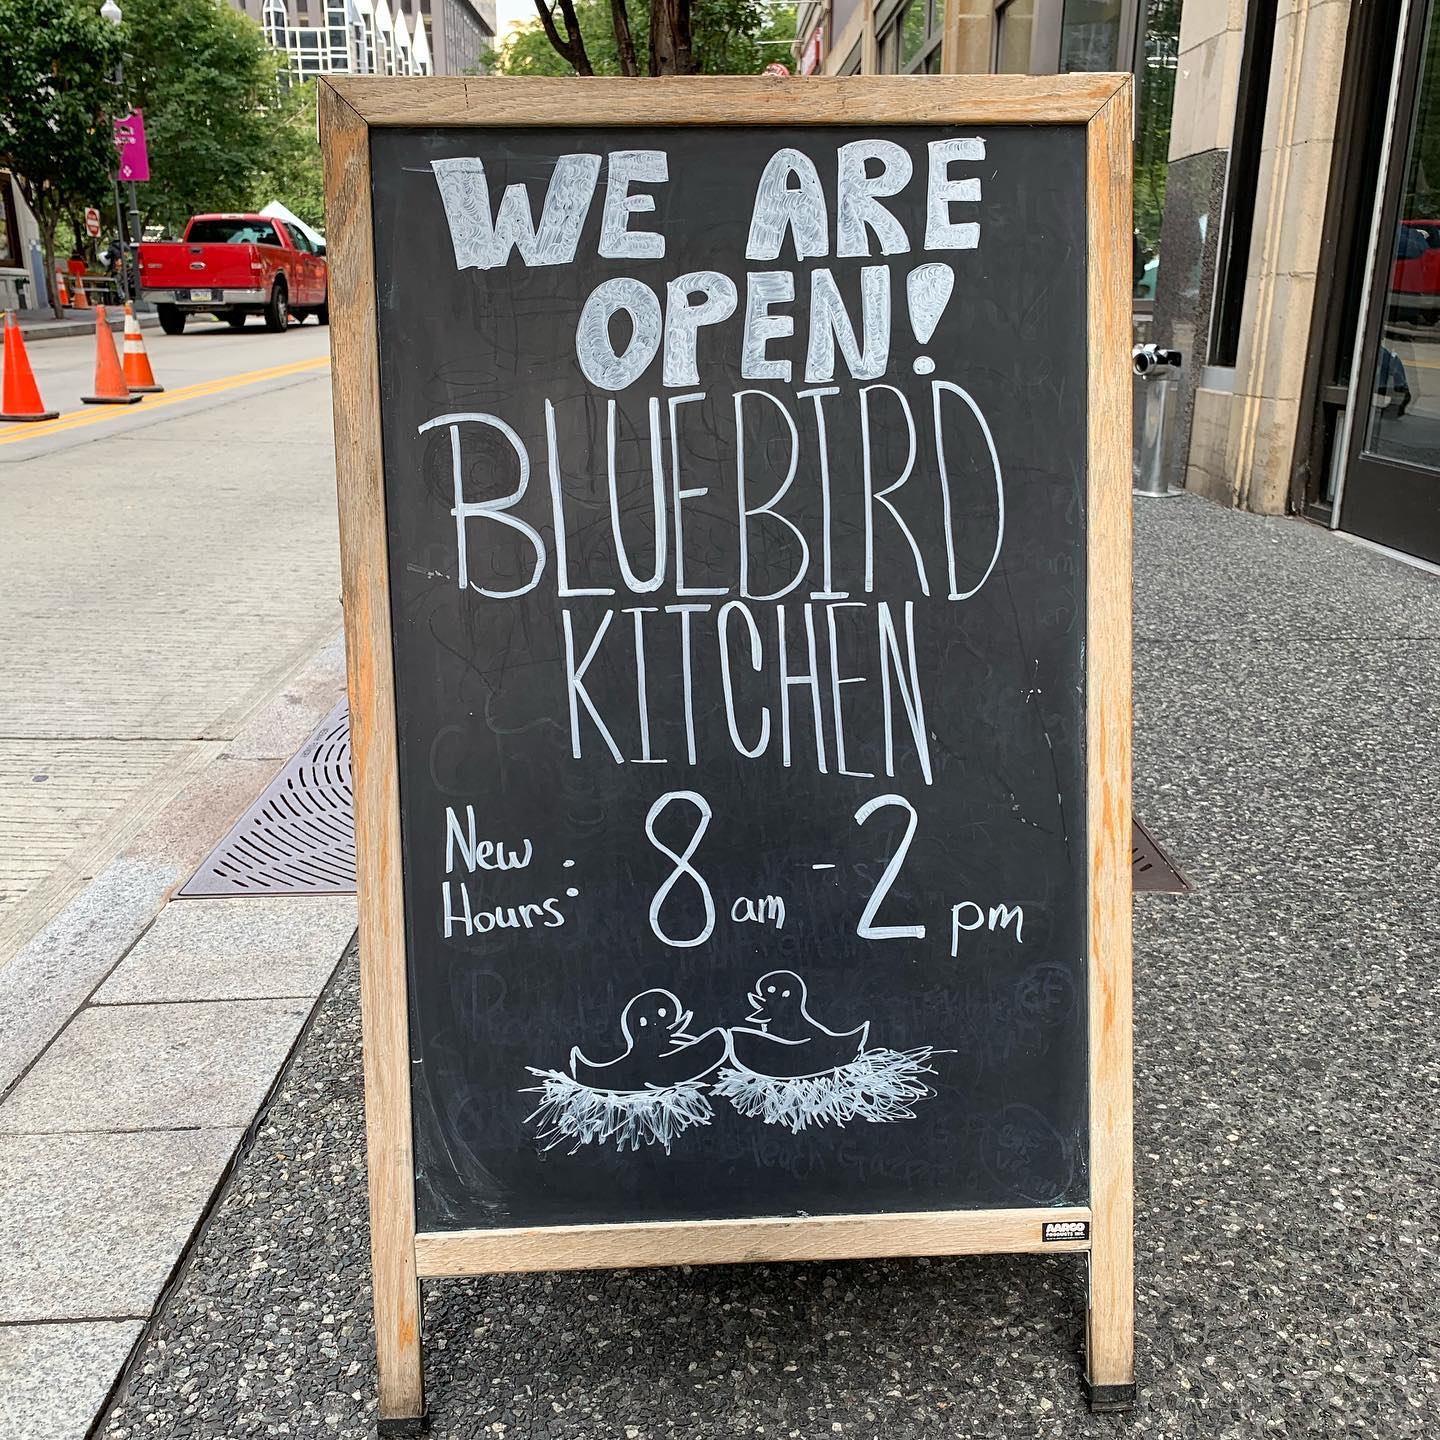 WE ARE
OPEN!
BLUEBIRD
KITCHEN
New
Hours: 8 am - 2 pm
AARCO
PRODUCTS INC.